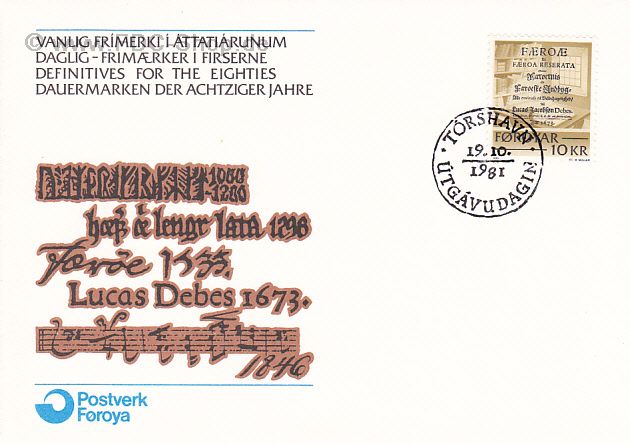 © www.FDC-Shop.de
VANLIG FRÍMERKI Í ÁTTATIÁRUNUM
DAGLIG-FRIMÆRKER I FIRSERNE
DEFINITIVES FOR THE EIGHTIES
DAUERMARKEN DER ACHTZIGER JAHRE
1000
1200
lengr lata 1298
Færøe 1535.
Lucas Debes 1673.
1846
Postverk
Føroya
FÆROÆ
FÆROA RESERATA
Lucas Jacobsøn Debes
1673.
FØROYAR
10 KR
TÓRSHAVN
19.10.
1981
ÚTGÁVUDAGIN